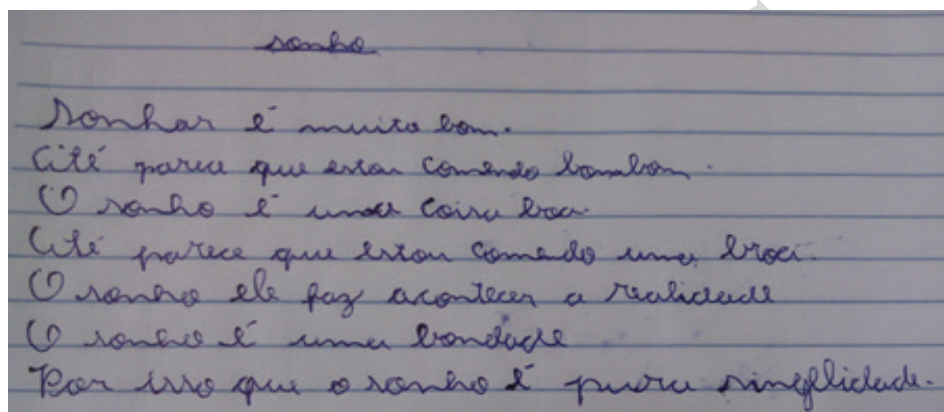 sonho
Sonhar é muito bom.
Até parece que estou comendo bombom.
O sonho é uma coisa boa.
Até parece que estou comendo uma broa.
O sonho ele faz acontecer a realidade
O sonho é uma bondade
Por isso que o sonho é pura singlicidade.